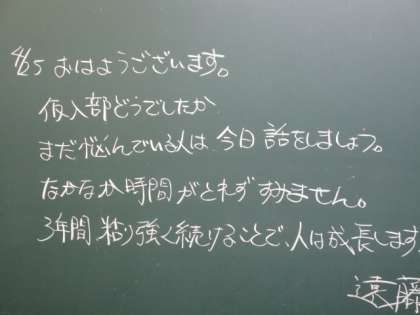 4/25 おはようございます。
仮入部どうでしたか
まだ悩んでいる人は今日話をしましょう。
なかなか時間がとれずすみません。
3年間、粘り強く続けることで、人は成長します
遠藤